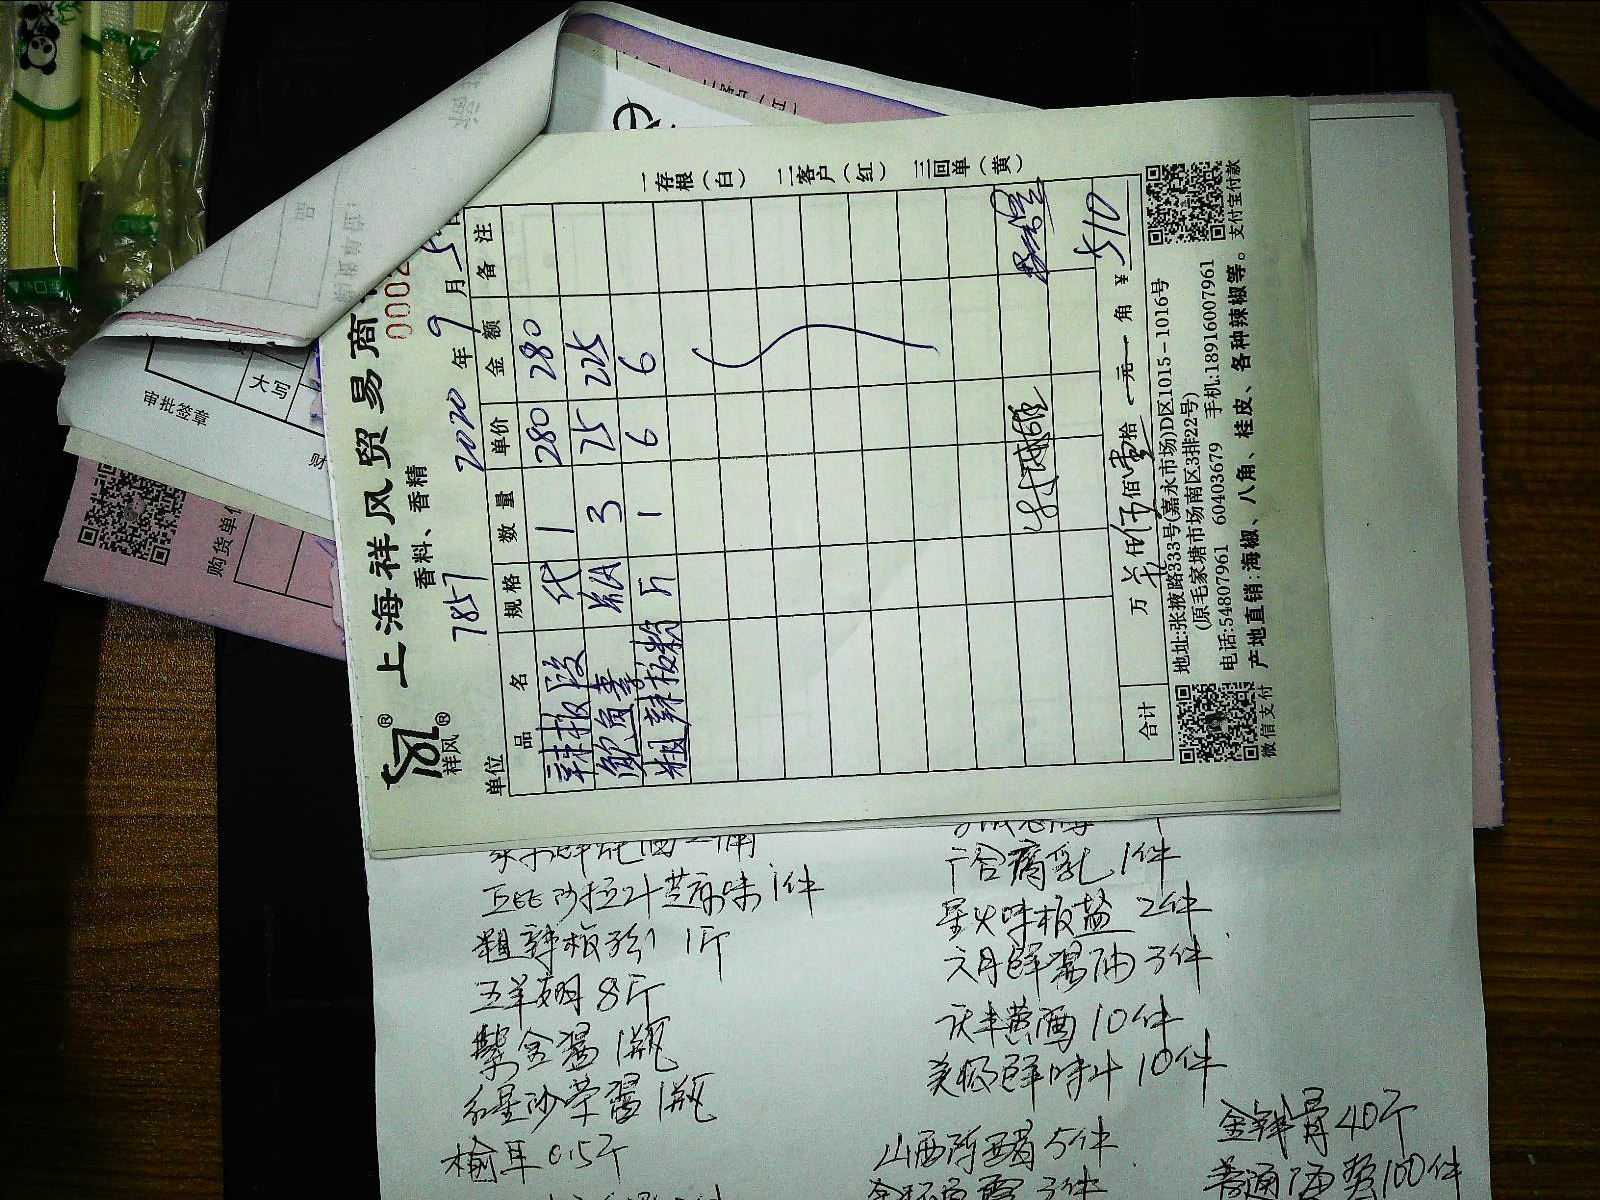 上海祥风贸易商
0002
香料、香精
祥风
7857
2020年9月5日
单位
品名 规格 数量 单价 金额 备注
辣椒段 代 1 280 280
鲍鱼素 瓶 3 75 225
粗辣椒粉 斤 1 6 6
合计 万 仟伍佰壹拾 元 角 ¥ 510
地址:张掖路333号(嘉永市场)D区1015-1016号
(原毛家塘市场南区3排22号)
电话:54807961 60403679 手机:18916007961
产地直销:海椒、八角、桂皮、各种辣椒等。
微信支付
支付宝付款
一存根(白) 二客户(红) 三回单(黄)
大写
审批签章
财
购货单位
沙拉汁芝麻味 1件
粗辣椒粉 1斤
五羊 8斤
紫金酱 1瓶
红星沙茶酱 1瓶
榆耳 0.5斤
广合腐乳 1件
星火味椒盐 2件
六月鲜酱油 3件
黄酒 10件
美极鲜味汁 10件
山西陈醋 5件
3件
40斤
普通 100件